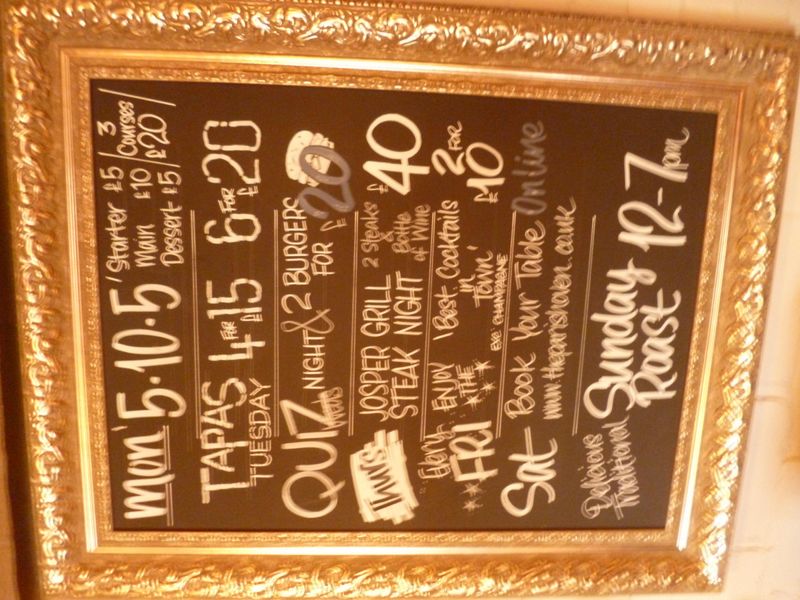 Mon' 5.10.5 / Starter £5 / 3
Main £10 / Courses
Dessert £5 / £20 /
TAPAS 4 FOR £15 6 FOR £20
TUESDAY
QUIZ NIGHT & 2 BURGERS
FOR £20
Thurs JOSPER GRILL 2 Steaks £40
STEAK NIGHT & Bottle
of Wine
Every ENJOY 'Best Cocktails 2 FOR
FRI THE in £10
Town'
EXC CHAMPAGNE
Sat Book Your Table Online
Delicious Sunday 12-7pm
Traditional Roast